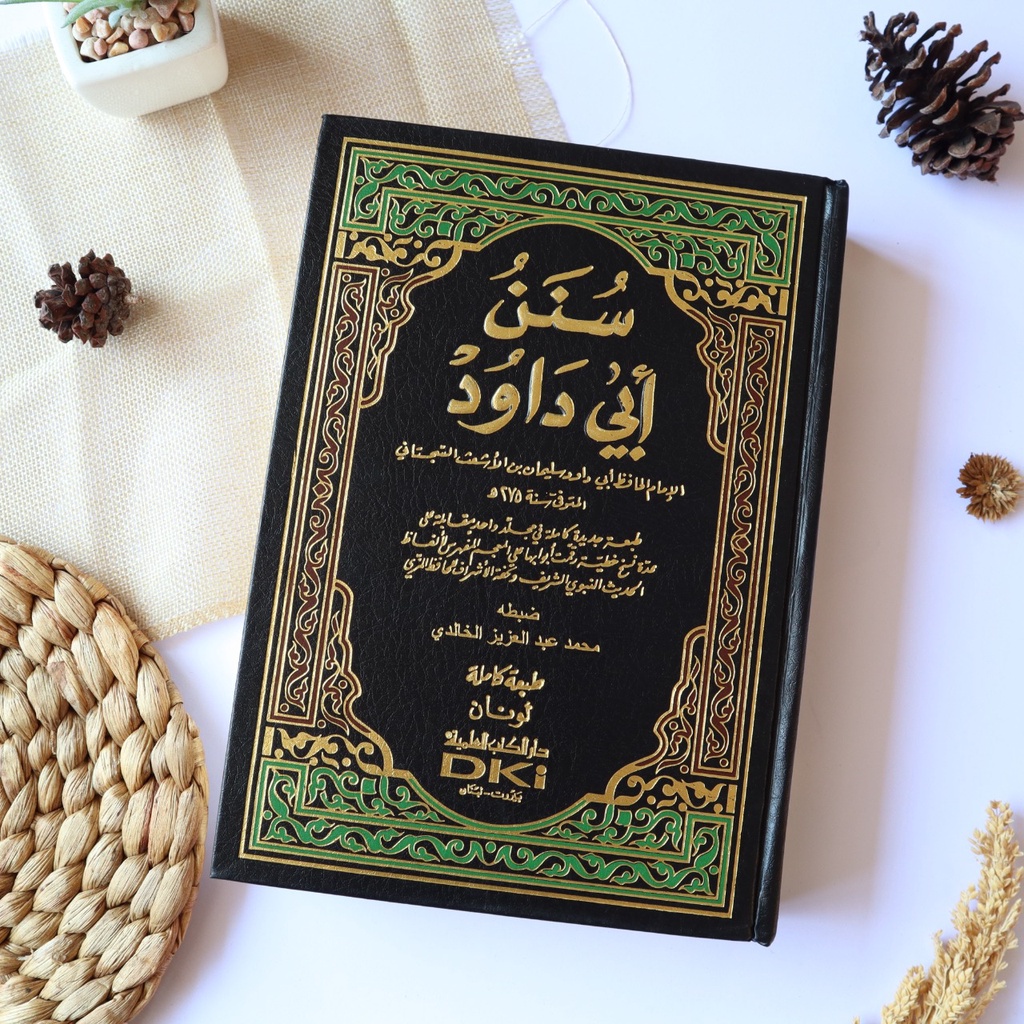 سُنَنُ
أَبِيْ دَاوُدْ
الإمام الحافظ أبي داود سليمان بن الأشعث السجستاني
المتوفى سنة ٢٧٥ هـ
طبعة جديدة كاملة في مجلد واحد مقابلة على
عدة نسخ خطية رقمت أبوابها على المعجم المفهرس لألفاظ
الحديث النبوي الشريف وتحفة الأشراف للحافظ المزي
ضبطه
محمد عبد العزيز الخالدي
طبعة كاملة
لونان
دار الكتب العلمية
DKi
بيروت - لبنان